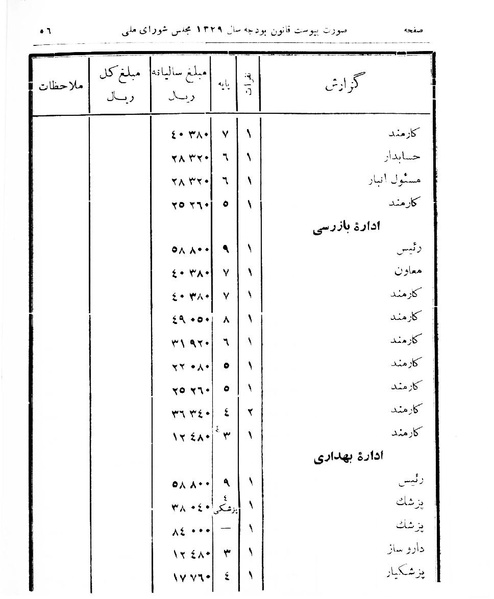 صفحه صورت پیوست قانون بودجه سال ۱۳۲۹ مجلس شورای ملی ۵٦
گزارش نفرات پایه مبلغ سالیانه ریال مبلغ کل ریال ملاحظات
کارمند ۱ ۷ ٤۰ ۳۸۰
حسابدار ۱ ٦ ۲۸ ۳۲۰
مسئول انبار ۱ ٦ ۲۸ ۳۲۰
کارمند ۱ ۵ ۲۵ ۲٦۰
ادارهٔ بازرسی
رئیس ۱ ۹ ۵۸ ۸۰۰
معاون ۱ ۷ ٤۰ ۳۸۰
کارمند ۱ ۷ ٤۰ ۳۸۰
کارمند ۱ ۸ ٤۹ ۰۵۰
کارمند ۱ ٦ ۳۱ ۹۲۰
کارمند ۱ ۵ ۲۲ ۰۸۰
کارمند ۱ ۵ ۲۵ ۲٦۰
کارمند ۲ ٤ ۳٦ ۳٤۰
کارمند ۱ ۳ ۱۲ ٤۸۰
ادارهٔ بهداری
رئیس ۱ ۹ ۵۸ ۸۰۰
پزشك ۱ ٤ پزشکی ۳۸ ۰٤۰
پزشك ۱ — ۸٤ ۰۰۰
دارو ساز ۱ ۳ ۱۲ ٤۸۰
پزشکیار ۱ ٤ ۱۷ ۷٦۰